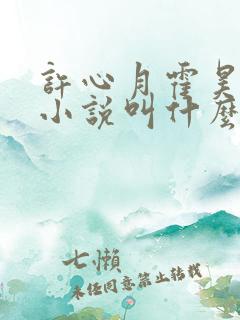 許心月霍昊
小說叫什麼
七懶
未經同意禁止轉載